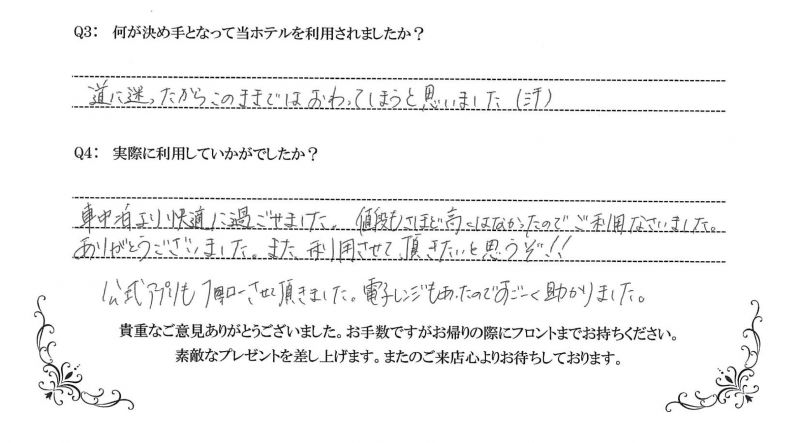 Q3: 何が決め手となって当ホテルを利用されましたか?
道に迷ったからこのままではおわってしまうと思いました(汗)
Q4: 実際に利用していかがでしたか?
車中泊より快適に過ごせました。値段もさほど高くはなかったのでご利用なさいました。
ありがとうございました。また利用させて頂きたいと思うぞ!!
公式アプリもフォローさせて頂きました。電子レンジもあったのですごーく助かりました。
貴重なご意見ありがとうございました。お手数ですがお帰りの際にフロントまでお持ちください。
素敵なプレゼントを差し上げます。またのご来店心よりお待ちしております。